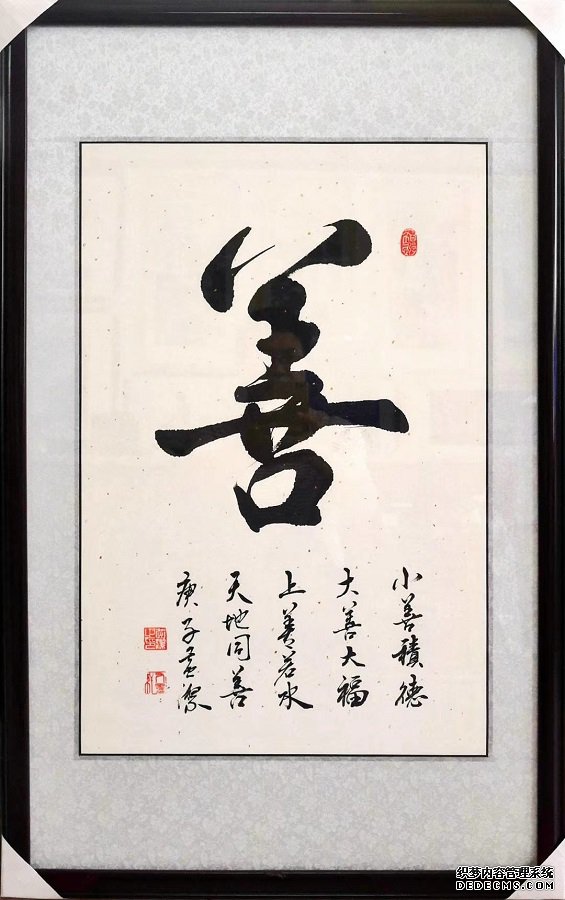 善
小善積德
大善大福
上善若水
天地同善
庚子孟潔
织梦内容管理系统
DEDECMS.COM